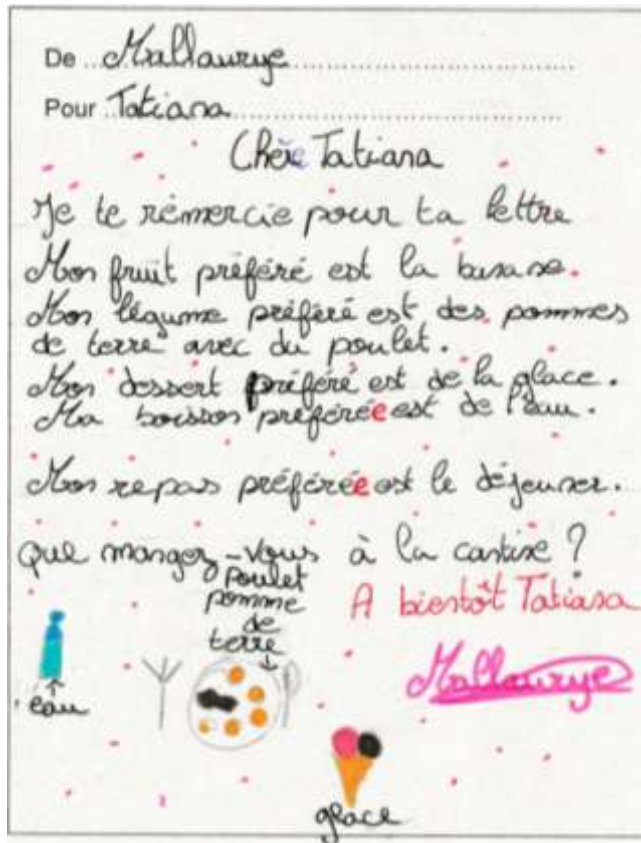 De Mallaurye
Pour Tatiana
Chère Tatiana
Je te rémercie pour ta lettre
Mon fruit préféré est la banane.
Mon légume préféré est des pommes
de terre avec du poulet.
Mon dessert préféré est de la glace.
Ma boisson préférée est de l'eau.
Mon repas préférée est le déjeuner.
Que mangez-vous à la cantine ?
Poulet
pomme
de
terre
A bientôt Tatiana
Mallaurye
eau
glace